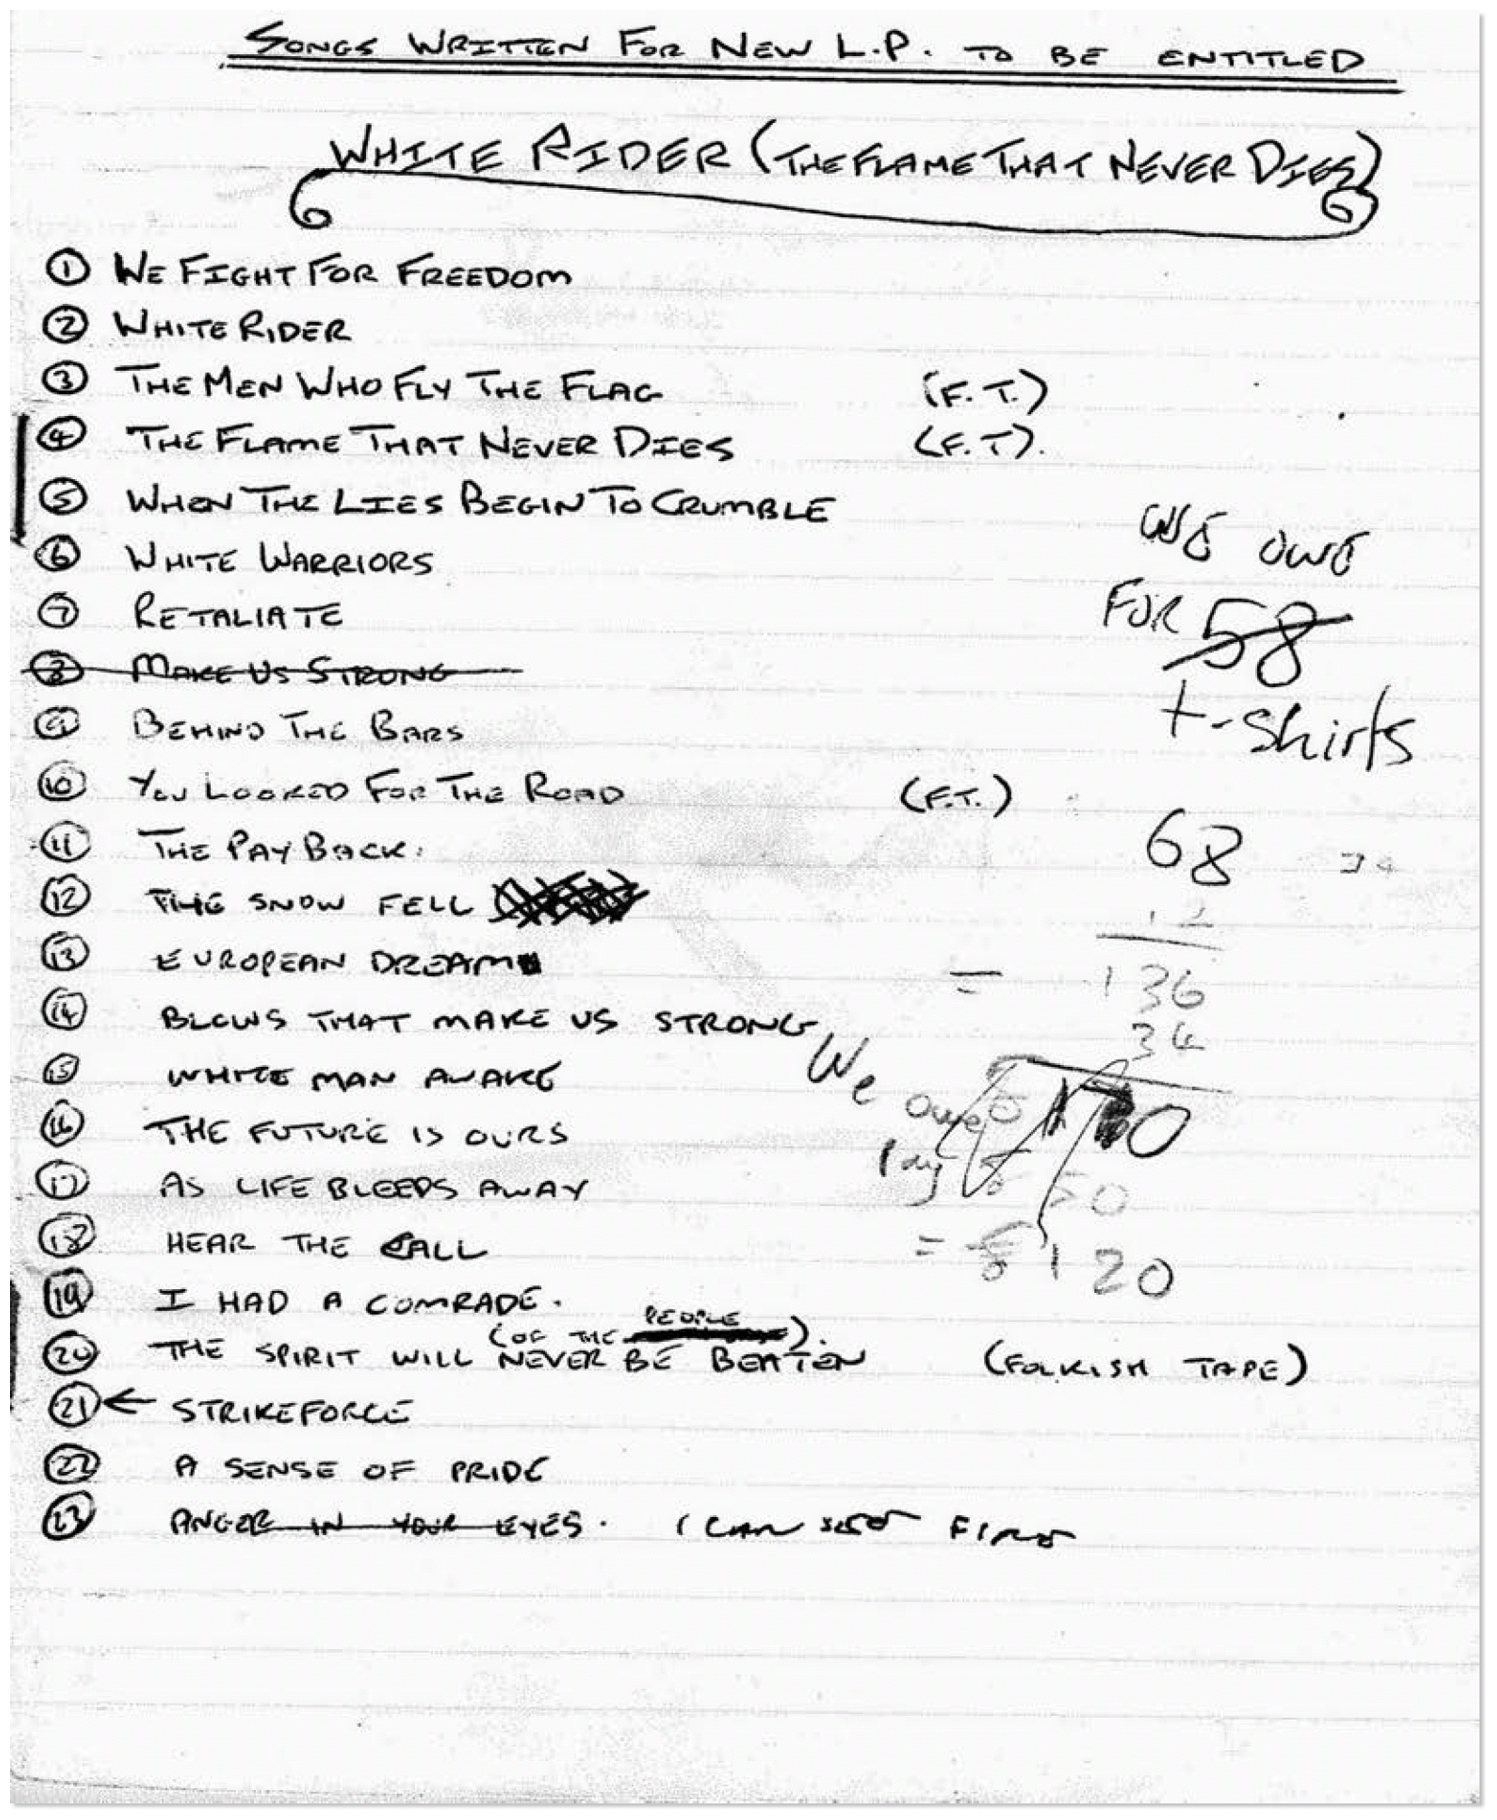 SONGS WRITTEN FOR NEW L.P. TO BE ENTITLED
WHITE RIDER (THE FLAME THAT NEVER DIES)
1 WE FIGHT FOR FREEDOM
2 WHITE RIDER
3 THE MEN WHO FLY THE FLAG (F.T.)
4 THE FLAME THAT NEVER DIES (F.T).
5 WHEN THE LIES BEGIN TO CRUMBLE
6 WHITE WARRIORS
7 RETALIATE
8 MAKE US STRONG
9 BEHIND THE BARS
10 YOU LOOKED FOR THE ROAD (F.T.)
11 THE PAY BACK.
12 THE SNOW FELL
13 EUROPEAN DREAM
14 BLOWS THAT MAKE US STRONG
15 WHITE MAN AWAKE
16 THE FUTURE IS OURS
17 AS LIFE BLEEDS AWAY
18 HEAR THE CALL
19 I HAD A COMRADE.
(OF THE PEOPLE).
20 THE SPIRIT WILL NEVER BE BEATEN (FOLKISH TAPE)
21 ← STRIKEFORCE
22 A SENSE OF PRIDE
23 ANGER IN YOUR EYES. I CAN SEE FIRE
WE OWE
FOR 58
t-shirts
68
12
= 136
34
We
owe
Pay £50
= £120